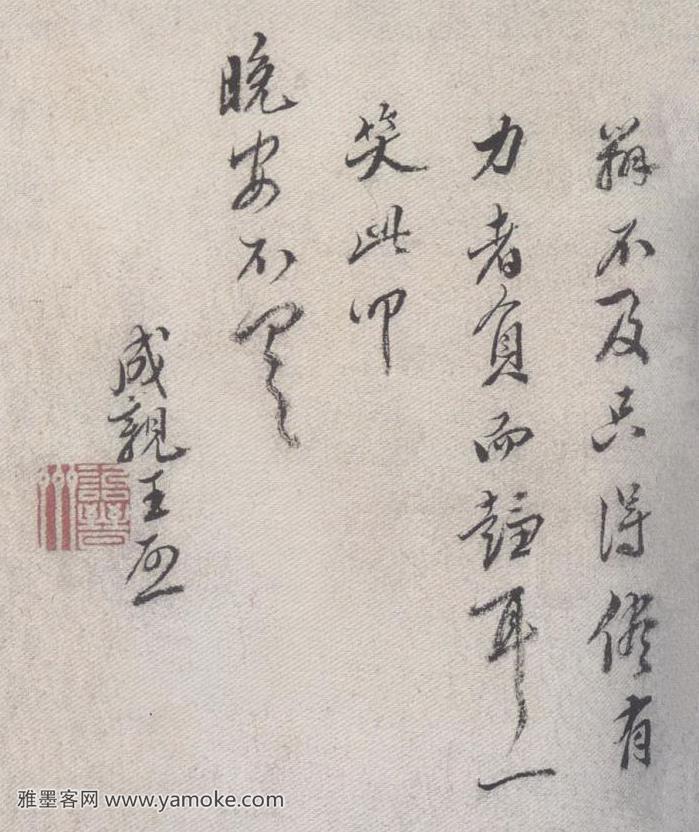 辦不及只得俟有
力者負而趨耳一
笑此叩
晚安不
成親王
雅墨客网 www.yamoke.com